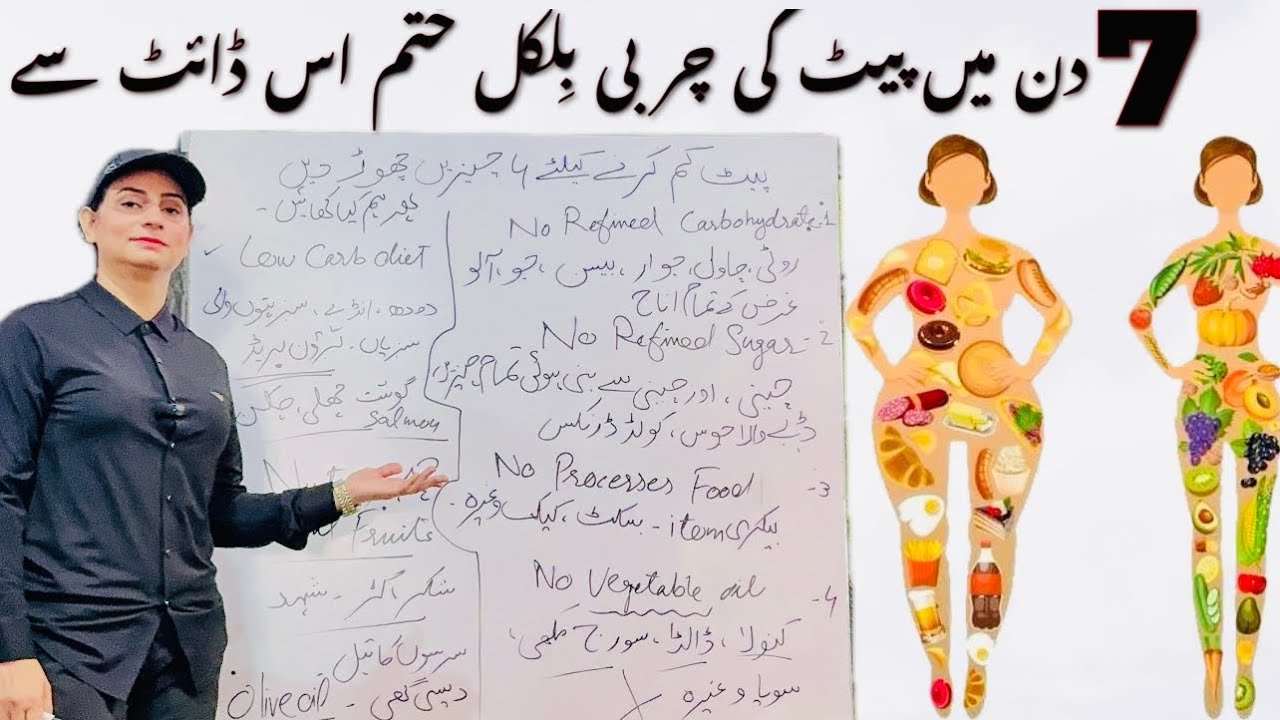 7 دن میں پیٹ کی چربی بِلکل ختم اس ڈائٹ سے
پیٹ کم کرنے کیلئے 4 چیزیں چھوڑ دیں
1. No Refined Carbohydrate
روٹی، چاول، جوار، بیسن، جو، آلو
غرض کے تمام اناج
2- No Refined Sugar
چینی، اور چینی سے بنی ہوئی تمام چیزیں،
ڈبے والا جوس، کولڈ ڈرنکس
3- No Processes Food
بیکری item - بسکٹ، کیک وغیرہ -
4- No Vegetable oil
کنولا، ڈالڈا، سورج مکھی،
سویا وغیرہ
پھر ہم کیا کھائیں -
Low Carb diet
دودھ، انڈے، سبز پتوں والی
سبزیاں -
گوشت مچھلی چکن
Salmon
Fruits
شکر، گڑ - شہد
سرسوں کا تیل
دیسی گھی - Olive oil